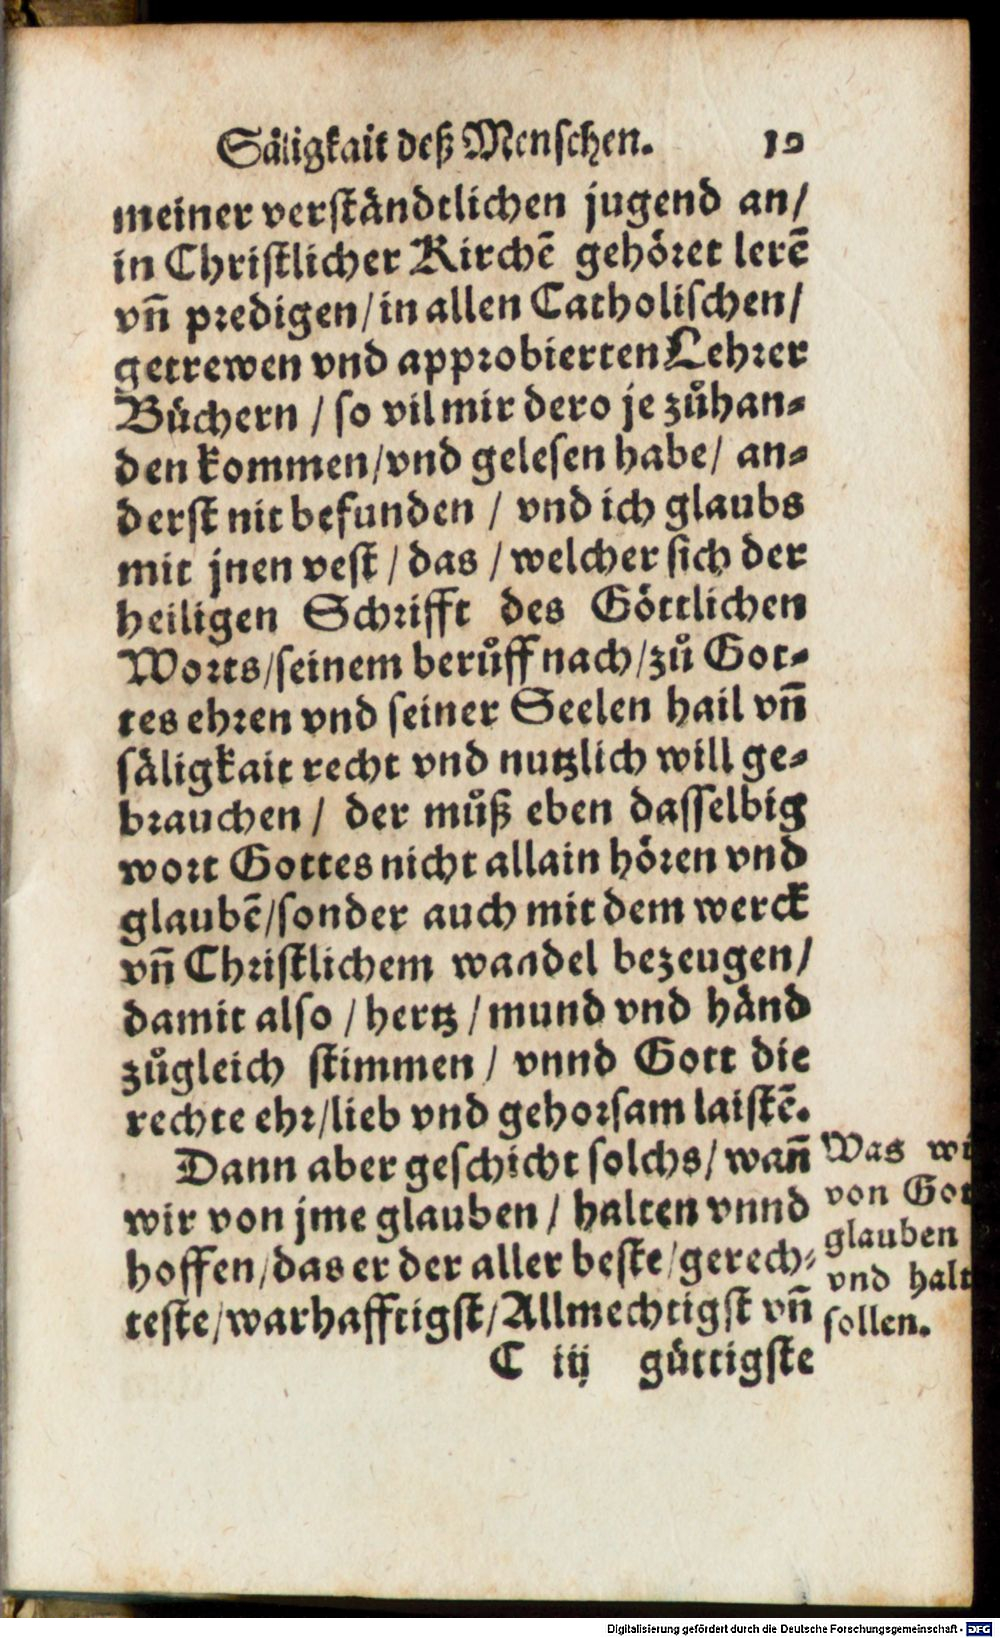 Säligkait deß Menschen. 19
meiner verständtlichen jugend an/
in Christlicher Kirchē gehöret lerē
vn̄ predigen/in allen Catholischen/
getrewen vnd approbierten Lehrer
Büchern / so vil mir dero je zůhan-
den kommen/vnd gelesen habe/ an-
derst nit befunden / vnd ich glaubs
mit jnen vest / das / welcher sich der
heiligen Schrifft des Göttlichen
Worts/seinem berůff nach/zů Got-
tes ehren vnd seiner Seelen hail vn̄
säligkait recht vnd nutzlich will ge-
brauchen / der můß eben dasselbig
wort Gottes nicht allain hören vnd
glaubē/sonder auch mit dem werck
vn̄ Christlichem wandel bezeugen/
damit also / hertz / mund vnd händ
zůgleich stimmen / vnnd Gott die
rechte ehr/lieb vnd gehorsam laistē.
Dann aber geschicht solchs/ wan̄
wir von jme glauben / halten vnnd
hoffen/das er der aller beste/gerech-
teste/warhafftigst/Allmechtigst vn̄
Was wi
von Got
glauben
vnd halt
sollen.
C iij güttigste
Digitalisierung gefördert durch die Deutsche Forschungsgemeinschaft - DFG